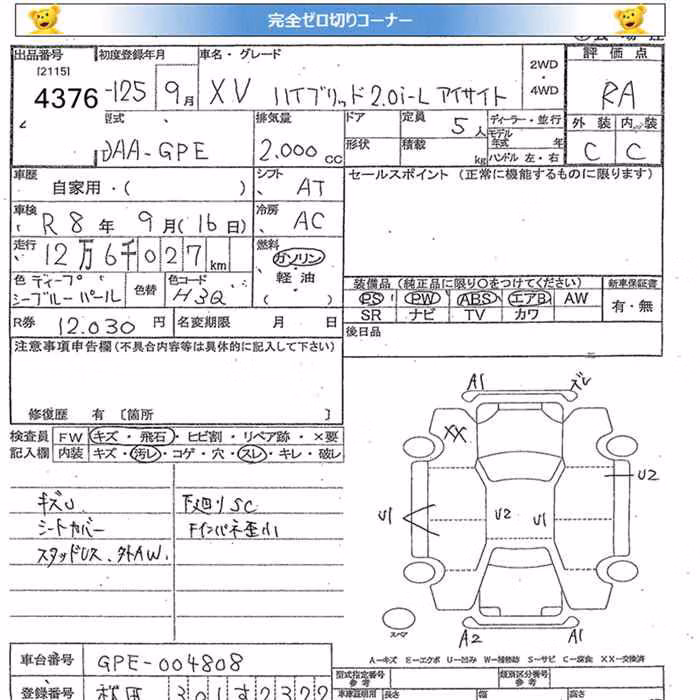 完全ゼロ切りコーナー
出品番号 [2115] 4376
初度登録年月 -125 9月
車名・グレード XV ハイブリッド2.0i-L アイサイト
2WD・4WD
評価点 RA
外装 内装
C C
型式 DAA-GPE
排気量 2.000cc
ドア
定員 5人
ディーラー・並行
モデル年式 年
形状
積載 kg
ハンドル 左・右
車歴 自家用・( )
シフト AT
セールスポイント (正常に機能するものに限ります)
車検 R8年 9月(16日)
冷房 AC
走行 12万6千027km
燃料 ガソリン・軽油 ( )
色 ディープシーブルーパール
色替
色コード H3Q
装備品 (純正品に限り○をつけてください)
新車保証書
PS PW ABS エアB AW
有・無
SR ナビ TV カワ
R券 12.030円
名変期限 月 日
後日品
注意事項申告欄(不具合内容等は具体的に記入して下さい)
修復歴 有 〔箇所 〕
検査員記入欄
FW キズ・飛石・ヒビ割・リペア跡・×要
内装 キズ・汚レ・コゲ・穴・スレ・キレ・破レ
キズU 下廻りSC
シートカバー Fインパネ歪小
スタッドUS、外AW.
A1 ズレ
XX
U2
U1 U2 U1
スペア
A2 A1
A-キズ E-エクボ U-凹み W-補修跡 S-サビ C-腐食 XX-交換済
車台番号 GPE-004808
型式指定番号 参考
類別区分番号 参考
登録番号 301す2322
車庫証明用 長さ 幅 高さ